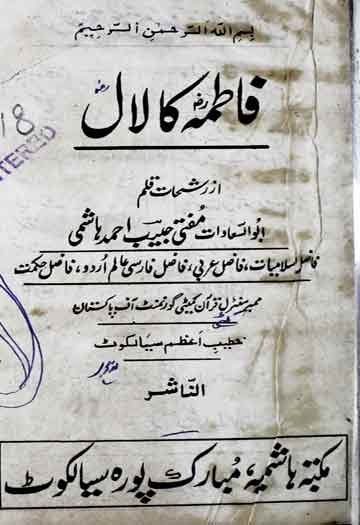 بِسْمِ اللهِ الرَّحْمٰنِ الرَّحِيْمِ
فاطمہؓ کا لالؓ
18
از رشحاتِ قلم
ابوالسعادات مُفتی حبیب احمد ہاشمی
فاضل اسلامیات، فاضل عربی، فاضل فارسی عالم اُردو، فاضل حکمت
ممبر سنٹرل قرآن کمیٹی گورنمنٹ آف پاکستان
خطیبِ اعظم سیالکوٹ
الناشر
مکتبہ ہاشمیہ، مُبارک پورہ سیالکوٹ